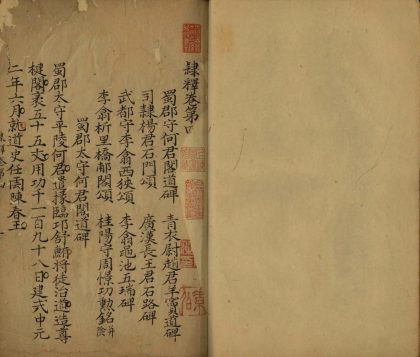 隸釋卷第四
蜀郡守何君閣道碑　青衣尉趙君羊竇道碑
司隸楊君石門頌　廣漢長王君石路碑
武都守李翕西狹頌　李翕黽池五瑞碑
李翕析里橋郙閣頌　桂陽守周憬功勳銘并陰
蜀郡太守何君閣道碑
蜀郡太守平陵何君遣掾臨邛舒鮪將徒治道造尊
楗閣袤五十五丈用功千一百九十八日建武中元
二年六月就道史任雲陳春主